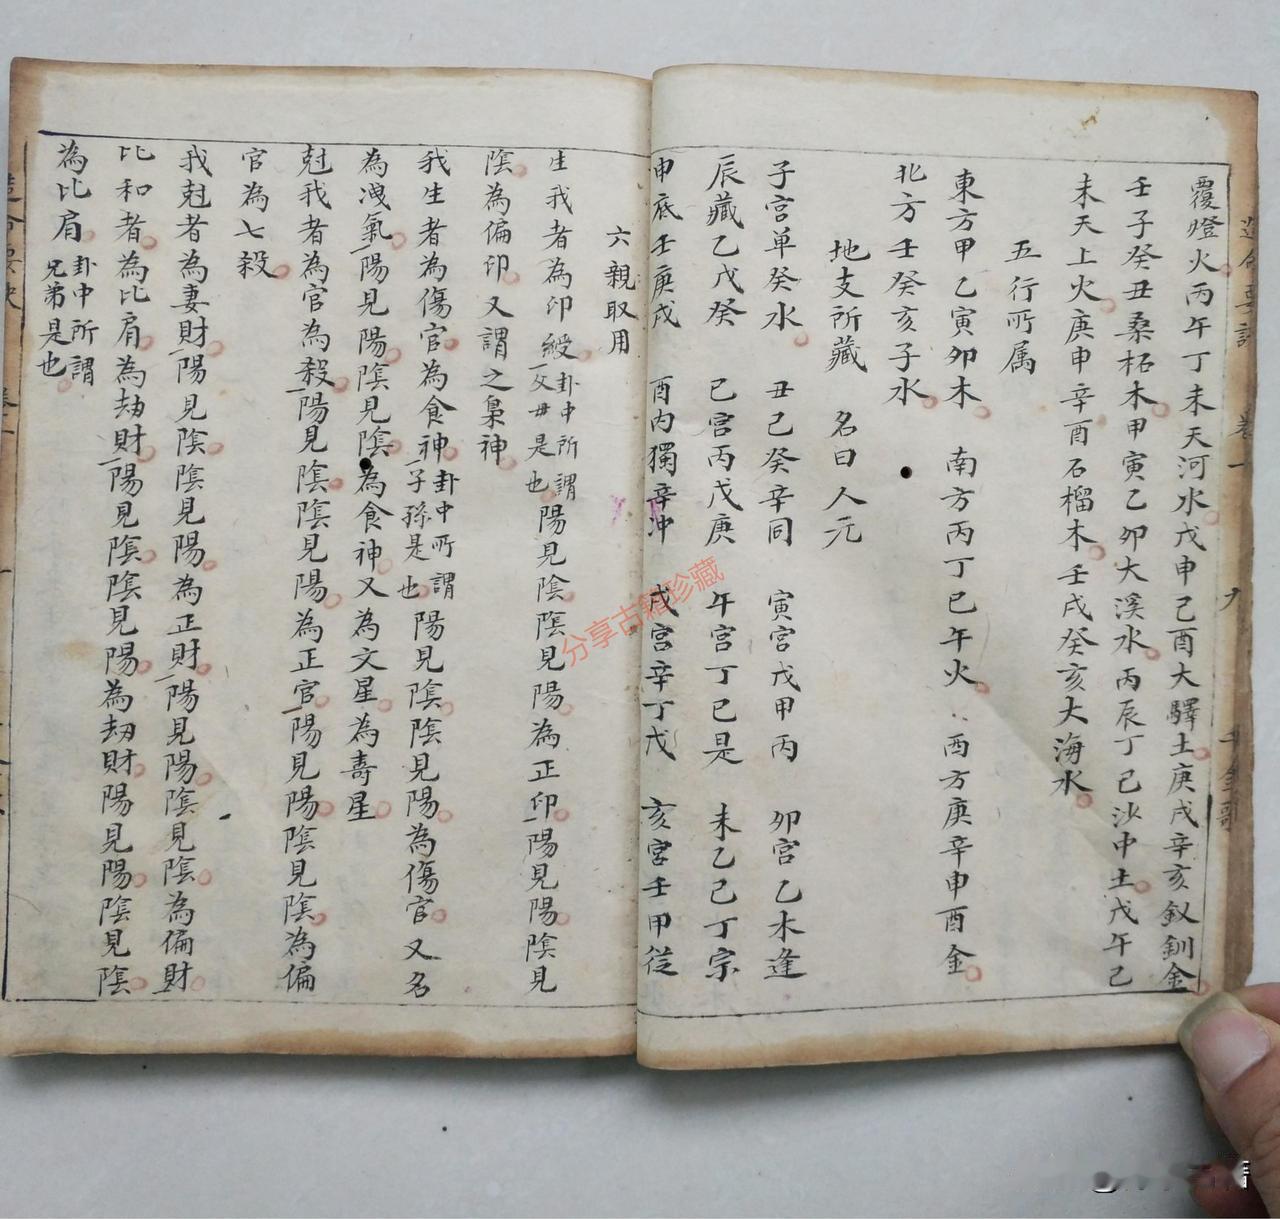 覆燈火丙午丁未天河水戊申己酉大驛土庚戌辛亥釵釧金
壬子癸丑桑柘木甲寅乙卯大溪水丙辰丁巳沙中土戊午己
未天上火庚申辛酉石榴木壬戌癸亥大海水
五行所属
東方甲乙寅卯木 南方丙丁巳午火 西方庚辛申酉金
北方壬癸亥子水
地支所藏 名曰人元
子宫单癸水 丑己癸辛同 寅宫戊甲丙 卯宫乙木逢
辰藏乙戊癸 巳宫丙戊庚 午宫丁己是 未乙己丁宗
申底壬庚戊 酉内獨辛冲 戌宫辛丁戊 亥宫壬甲從
六親取用
生我者為印綬卦中所謂父母是也陽見陰陰見陽為正印陽見陽陰見
陰為偏印又謂之梟神
我生者為傷官為食神卦中所謂子孫是也陽見陰陰見陽為傷官又名
為洩氣陽見陽陰見陰為食神又為文星為壽星
尅我者為官為殺陽見陰陰見陽為正官陽見陽陰見陰為偏
官為七殺
我尅者為妻財陽見陰陰見陽為正財陽見陽陰見陰為偏財
比和者為比肩為劫財陽見陰陰見陽為劫財陽見陽陰見陰
為比肩卦中所謂兄弟是也
分享古籍珍藏